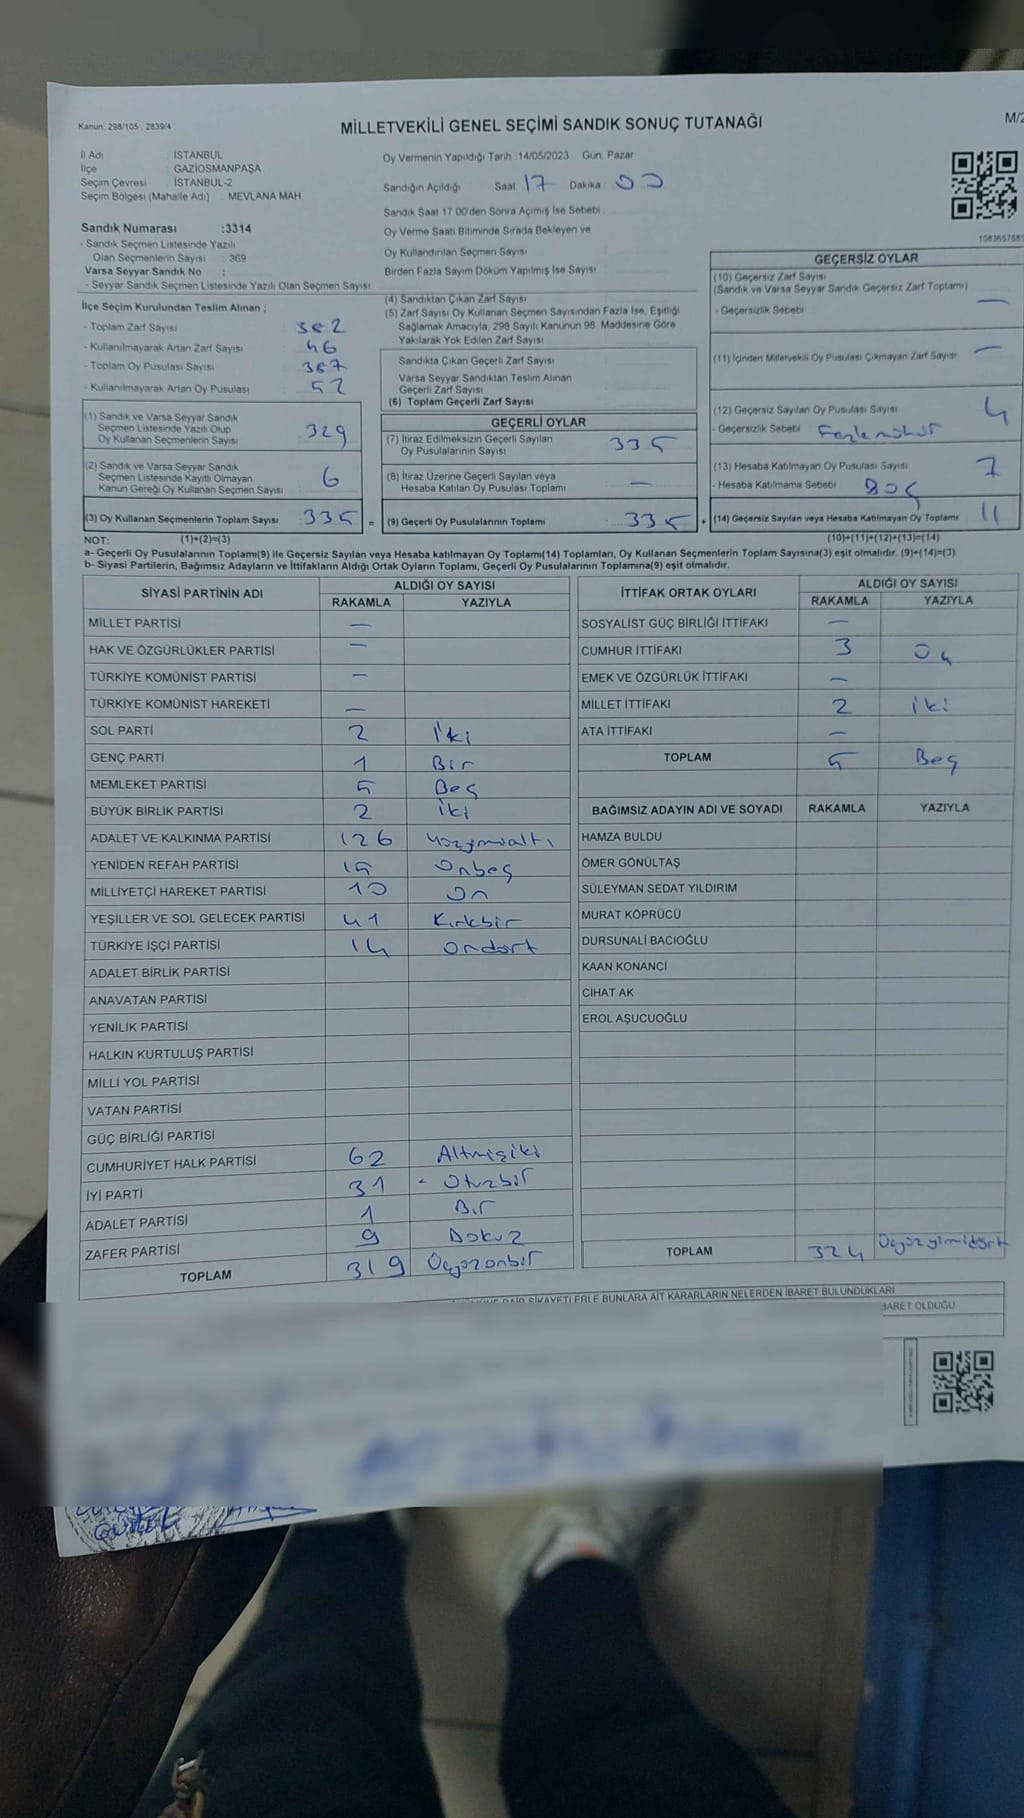 Kanun: 298/105 , 2839/4
MİLLETVEKİLİ GENEL SEÇİMİ SANDIK SONUÇ TUTANAĞI
M/2
İl Adı : İSTANBUL
İlçe : GAZİOSMANPAŞA
Seçim Çevresi : İSTANBUL-2
Seçim Bölgesi (Mahalle Adı) : MEVLANA MAH.
Oy Vermenin Yapıldığı Tarih :14/05/2023 Gün: Pazar
Sandığın Açıldığı Saat: 17 Dakika: 00
Sandık Saat 17.00'den Sonra Açımış İse Sebebi
Oy Verme Saati Bitiminde Sırada Bekleyen ve
Oy Kullandırılan Seçmen Sayısı
Birden Fazla Sayım Döküm Yapılmış İse Sayısı
Sandık Numarası :3314
- Sandık Seçmen Listesinde Yazılı
Olan Seçmenlerin Sayısı : 369
Varsa Seyyar Sandık No :
- Seyyar Sandık Seçmen Listesinde Yazılı Olan Seçmen Sayısı
İlçe Seçim Kurulundan Teslim Alınan :
- Toplam Zarf Sayısı : 382
- Kullanılmayarak Artan Zarf Sayısı : 46
- Toplam Oy Pusulası Sayısı : 387
- Kullanılmayarak Artan Oy Pusulası : 52
(1) Sandık ve Varsa Seyyar Sandık
Seçmen Listesinde Yazılı Olup
Oy Kullanan Seçmenlerin Sayısı : 329
(2) Sandık ve Varsa Seyyar Sandık
Seçmen Listesinde Kayıtlı Olmayan
Kanun Gereği Oy Kullanan Seçmen Sayısı : 6
(3) Oy Kullanan Seçmenlerin Toplam Sayısı : 335 =
(4) Sandıktan Çıkan Zarf Sayısı
(5) Zarf Sayısı Oy Kullanan Seçmen Sayısından Fazla İse, Eşitliği
Sağlamak Amacıyla, 298 Sayılı Kanunun 98. Maddesine Göre
Yakılarak Yok Edilen Zarf Sayısı
Sandıkta Çıkan Geçerli Zarf Sayısı
Varsa Seyyar Sandıktan Teslim Alınan
Geçerli Zarf Sayısı
(6) Toplam Geçerli Zarf Sayısı
GEÇERLİ OYLAR
(7) İtiraz Edilmeksizin Geçerli Sayılan
Oy Pusulalarının Sayısı : 335
(8) İtiraz Üzerine Geçerli Sayılan veya
Hesaba Katılan Oy Pusulası Toplamı : —
(9) Geçerli Oy Pusulalarının Toplamı : 335 +
GEÇERSİZ OYLAR
(10) Geçersiz Zarf Sayısı
(Sandık ve Varsa Seyyar Sandık Geçersiz Zarf Toplamı) —
- Geçersizlik Sebebi
(11) İçinden Milletvekili Oy Pusulası Çıkmayan Zarf Sayısı —
(12) Geçersiz Sayılan Oy Pusulası Sayısı 4
- Geçersizlik Sebebi Fazla mühür
(13) Hesaba Katılmayan Oy Pusulası Sayısı 7
- Hesaba Katılmama Sebebi BOŞ
(14) Geçersiz Sayılan veya Hesaba Katılmayan Oy Toplamı 11
NOT: (1)+(2)=(3)
(10)+(11)+(12)+(13)=(14)
a- Geçerli Oy Pusulalarının Toplamı(9) ile Geçersiz Sayılan veya Hesaba katılmayan Oy Toplamı(14) Toplamları, Oy Kullanan Seçmenlerin Toplam Sayısına(3) eşit olmalıdır. (9)+(14)=(3)
b- Siyasi Partilerin, Bağımsız Adayların ve İttifakların Aldığı Ortak Oyların Toplamı, Geçerli Oy Pusulalarının Toplamına(9) eşit olmalıdır.
SİYASİ PARTİNİN ADI ALDIĞI OY SAYISI
RAKAMLA YAZIYLA
MİLLET PARTİSİ —
HAK VE ÖZGÜRLÜKLER PARTİSİ —
TÜRKİYE KOMÜNİST PARTİSİ —
TÜRKİYE KOMÜNİST HAREKETİ —
SOL PARTİ 2 İki
GENÇ PARTİ 1 Bir
MEMLEKET PARTİSİ 5 Beş
BÜYÜK BİRLİK PARTİSİ 2 iki
ADALET VE KALKINMA PARTİSİ 126
YENİDEN REFAH PARTİSİ 15 Onbeş
MİLLİYETÇİ HAREKET PARTİSİ 10 On
YEŞİLLER VE SOL GELECEK PARTİSİ 41 Kırkbir
TÜRKİYE İŞÇİ PARTİSİ 14 Ondört
ADALET BİRLİK PARTİSİ
ANAVATAN PARTİSİ
YENİLİK PARTİSİ
HALKIN KURTULUŞ PARTİSİ
MİLLİ YOL PARTİSİ
VATAN PARTİSİ
GÜÇ BİRLİĞİ PARTİSİ
CUMHURİYET HALK PARTİSİ 62 Altmışiki
İYİ PARTİ 31 Otuzbir
ADALET PARTİSİ 1 Bir
ZAFER PARTİSİ 9 Dokuz
TOPLAM 319 Üçyüzonbir
İTTİFAK ORTAK OYLARI ALDIĞI OY SAYISI
RAKAMLA YAZIYLA
SOSYALİST GÜÇ BİRLİĞİ İTTİFAKI —
CUMHUR İTTİFAKI 3
EMEK VE ÖZGÜRLÜK İTTİFAKI —
MİLLET İTTİFAKI 2 iki
ATA İTTİFAKI —
TOPLAM 5 Beş
BAĞIMSIZ ADAYIN ADI VE SOYADI RAKAMLA YAZIYLA
HAMZA BULDU
ÖMER GÖNÜLTAŞ
SÜLEYMAN SEDAT YILDIRIM
MURAT KÖPRÜCÜ
DURSUNALİ BACIOĞLU
KAAN KONANCİ
CİHAT AK
EROL AŞUCUOĞLU
TOPLAM 324 Üçyüzyimidört
ŞİKAYETLERLE BUNLARA AİT KARARLARIN NELERDEN İBARET BULUNDUKLARI
BARET OLDUĞU